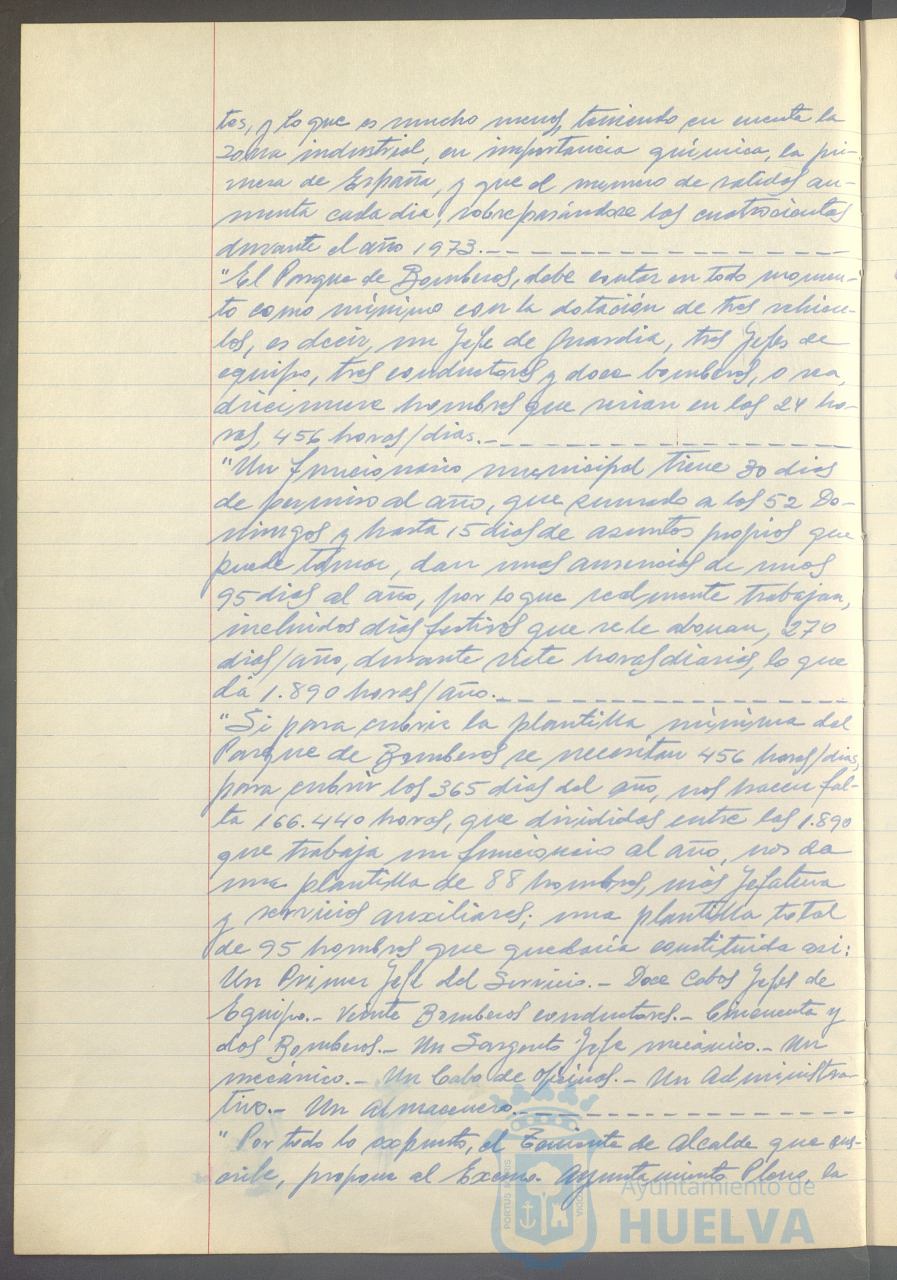 tos, y lo que es mucho menos, teniendo en cuenta la
zona industrial, en importancia química, la pri-
mera de España, y que el número de salidas au-
menta cada dia, sobrepasándose las cuatrocientas
durante el año 1973.-
"El Parque de Bomberos, debe contar en todo momen-
to como mínimo con la dotación de tres vehícu-
los, es decir, un Jefe de Guardia, tres Jefes de
equipo, tres conductores y doce bomberos, o sea,
diecinueve hombres que serian en las 24 ho-
ras, 456 horas/dias.-
"Un funcionario municipal tiene 30 dias
de permiso al año, que sumado a los 52 Do-
mingos y hasta 15 dias de asuntos propios que
puede tomar, dan unas ausencias de unos
95 dias al año, por lo que realmente trabajan,
incluidos dias festivos que se le abonan, 270
dias/año, durante siete horas diarias, lo que
dá 1.890 horas/año.-
"Si para cubrir la plantilla mínima del
Parque de Bomberos se necesitan 456 horas/dias,
para cubrir los 365 dias del año, nos hacen fal-
ta 166.440 horas, que divididas entre las 1.890
que trabaja un funcionario al año, nos da
una plantilla de 88 hombres, más Jefatura
y servicios auxiliares; una plantilla total
de 95 hombres que quedaria constituida asi:
Un Primer Jefe del Servicio.- Doce Cabos Jefes de
Equipo.- Veinte Bomberos conductores.- Cincuenta y
dos Bomberos.- Un Sargento Jefe mecánico.- Un
mecánico.- Un Cabo de oficinas.- Un Administra-
tivo.- Un Almacenero.-
"Por todo lo expuesto, el Teniente de Alcalde que sus-
cribe, propone al Excmo. Ayuntamiento Pleno, la
Ayuntamiento de
HUELVA